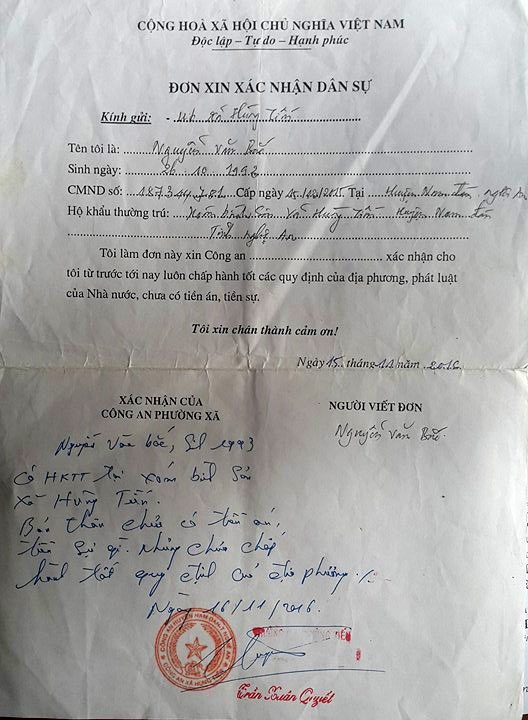 CỘNG HOÀ XÃ HỘI CHỦ NGHĨA VIỆT NAM
Độc lập – Tự do – Hạnh phúc
ĐƠN XIN XÁC NHẬN DÂN SỰ
Kính gửi: - Ub xã Hùng Tiến
Tên tôi là: Nguyễn Văn Bắc
Sinh ngày: 26 . 10 . 1993
CMND số: Cấp ngày Tại Huyện Nam đàn, nghệ An
Hộ khẩu thường trú: Xóm bình Sơn Xã Hùng Tiến Huyện Nam đàn
Tỉnh nghệ An
Tôi làm đơn này xin Công an xác nhận cho
tôi từ trước tới nay luôn chấp hành tốt các quy định của địa phương, phát luật
của Nhà nước, chưa có tiền án, tiền sự.
Tôi xin chân thành cảm ơn!
Ngày 15 tháng 11 năm 2016
XÁC NHẬN CỦA
CÔNG AN PHƯỜNG XÃ
NGƯỜI VIẾT ĐƠN
Nguyễn Văn Bắc
Nguyễn Văn bắc, Sn 1993
Có HKTT tại xóm bình Sơn
Xã Hùng Tiến.
Bản thân chưa có tiền án,
tiền sự gì. chấp
hành tốt quy định địa phương ./.
Ngày 16/11/2016.
Trần Xuân Quyết